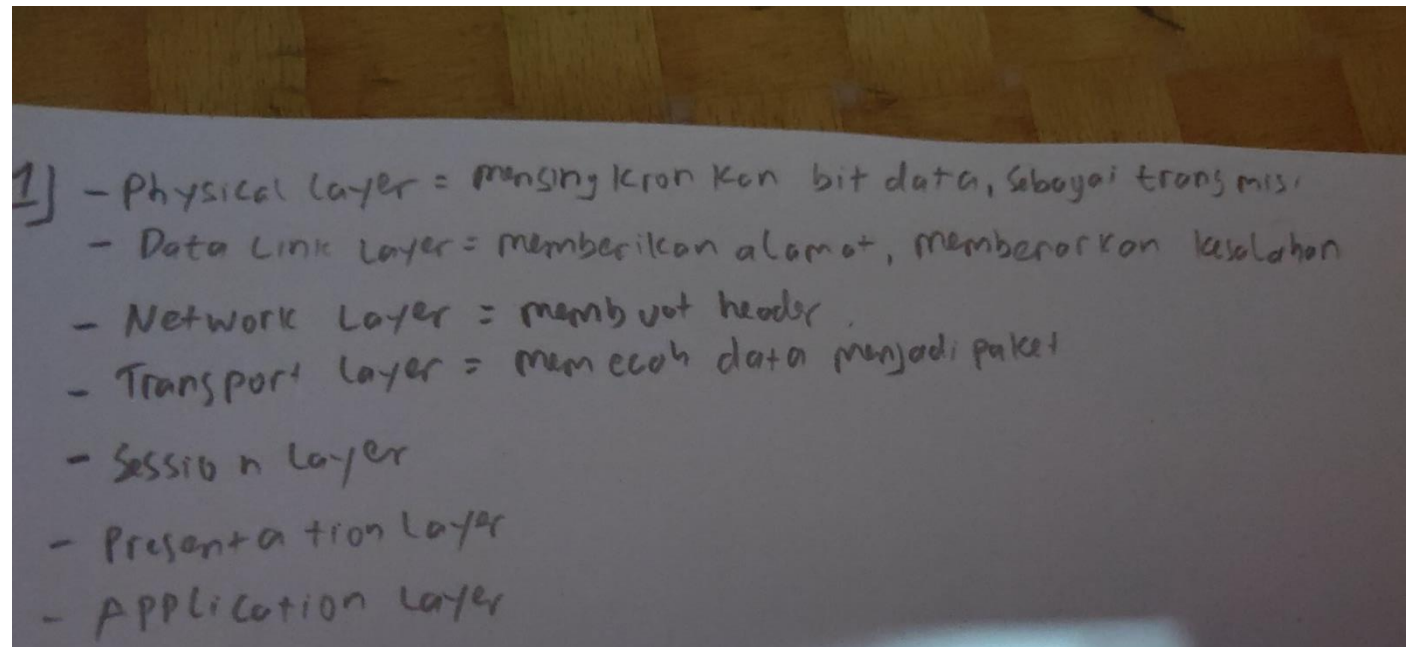 1] - Physical Layer = mensingkronkan bit data, sebagai transmisi
- Data Link Layer = memberikan alamat, membenarkan kesalahan
- Network Layer = membuat header.
- Transport Layer = memecah data menjadi paket
- Session Layer
- Presentation Layer
- Application Layer